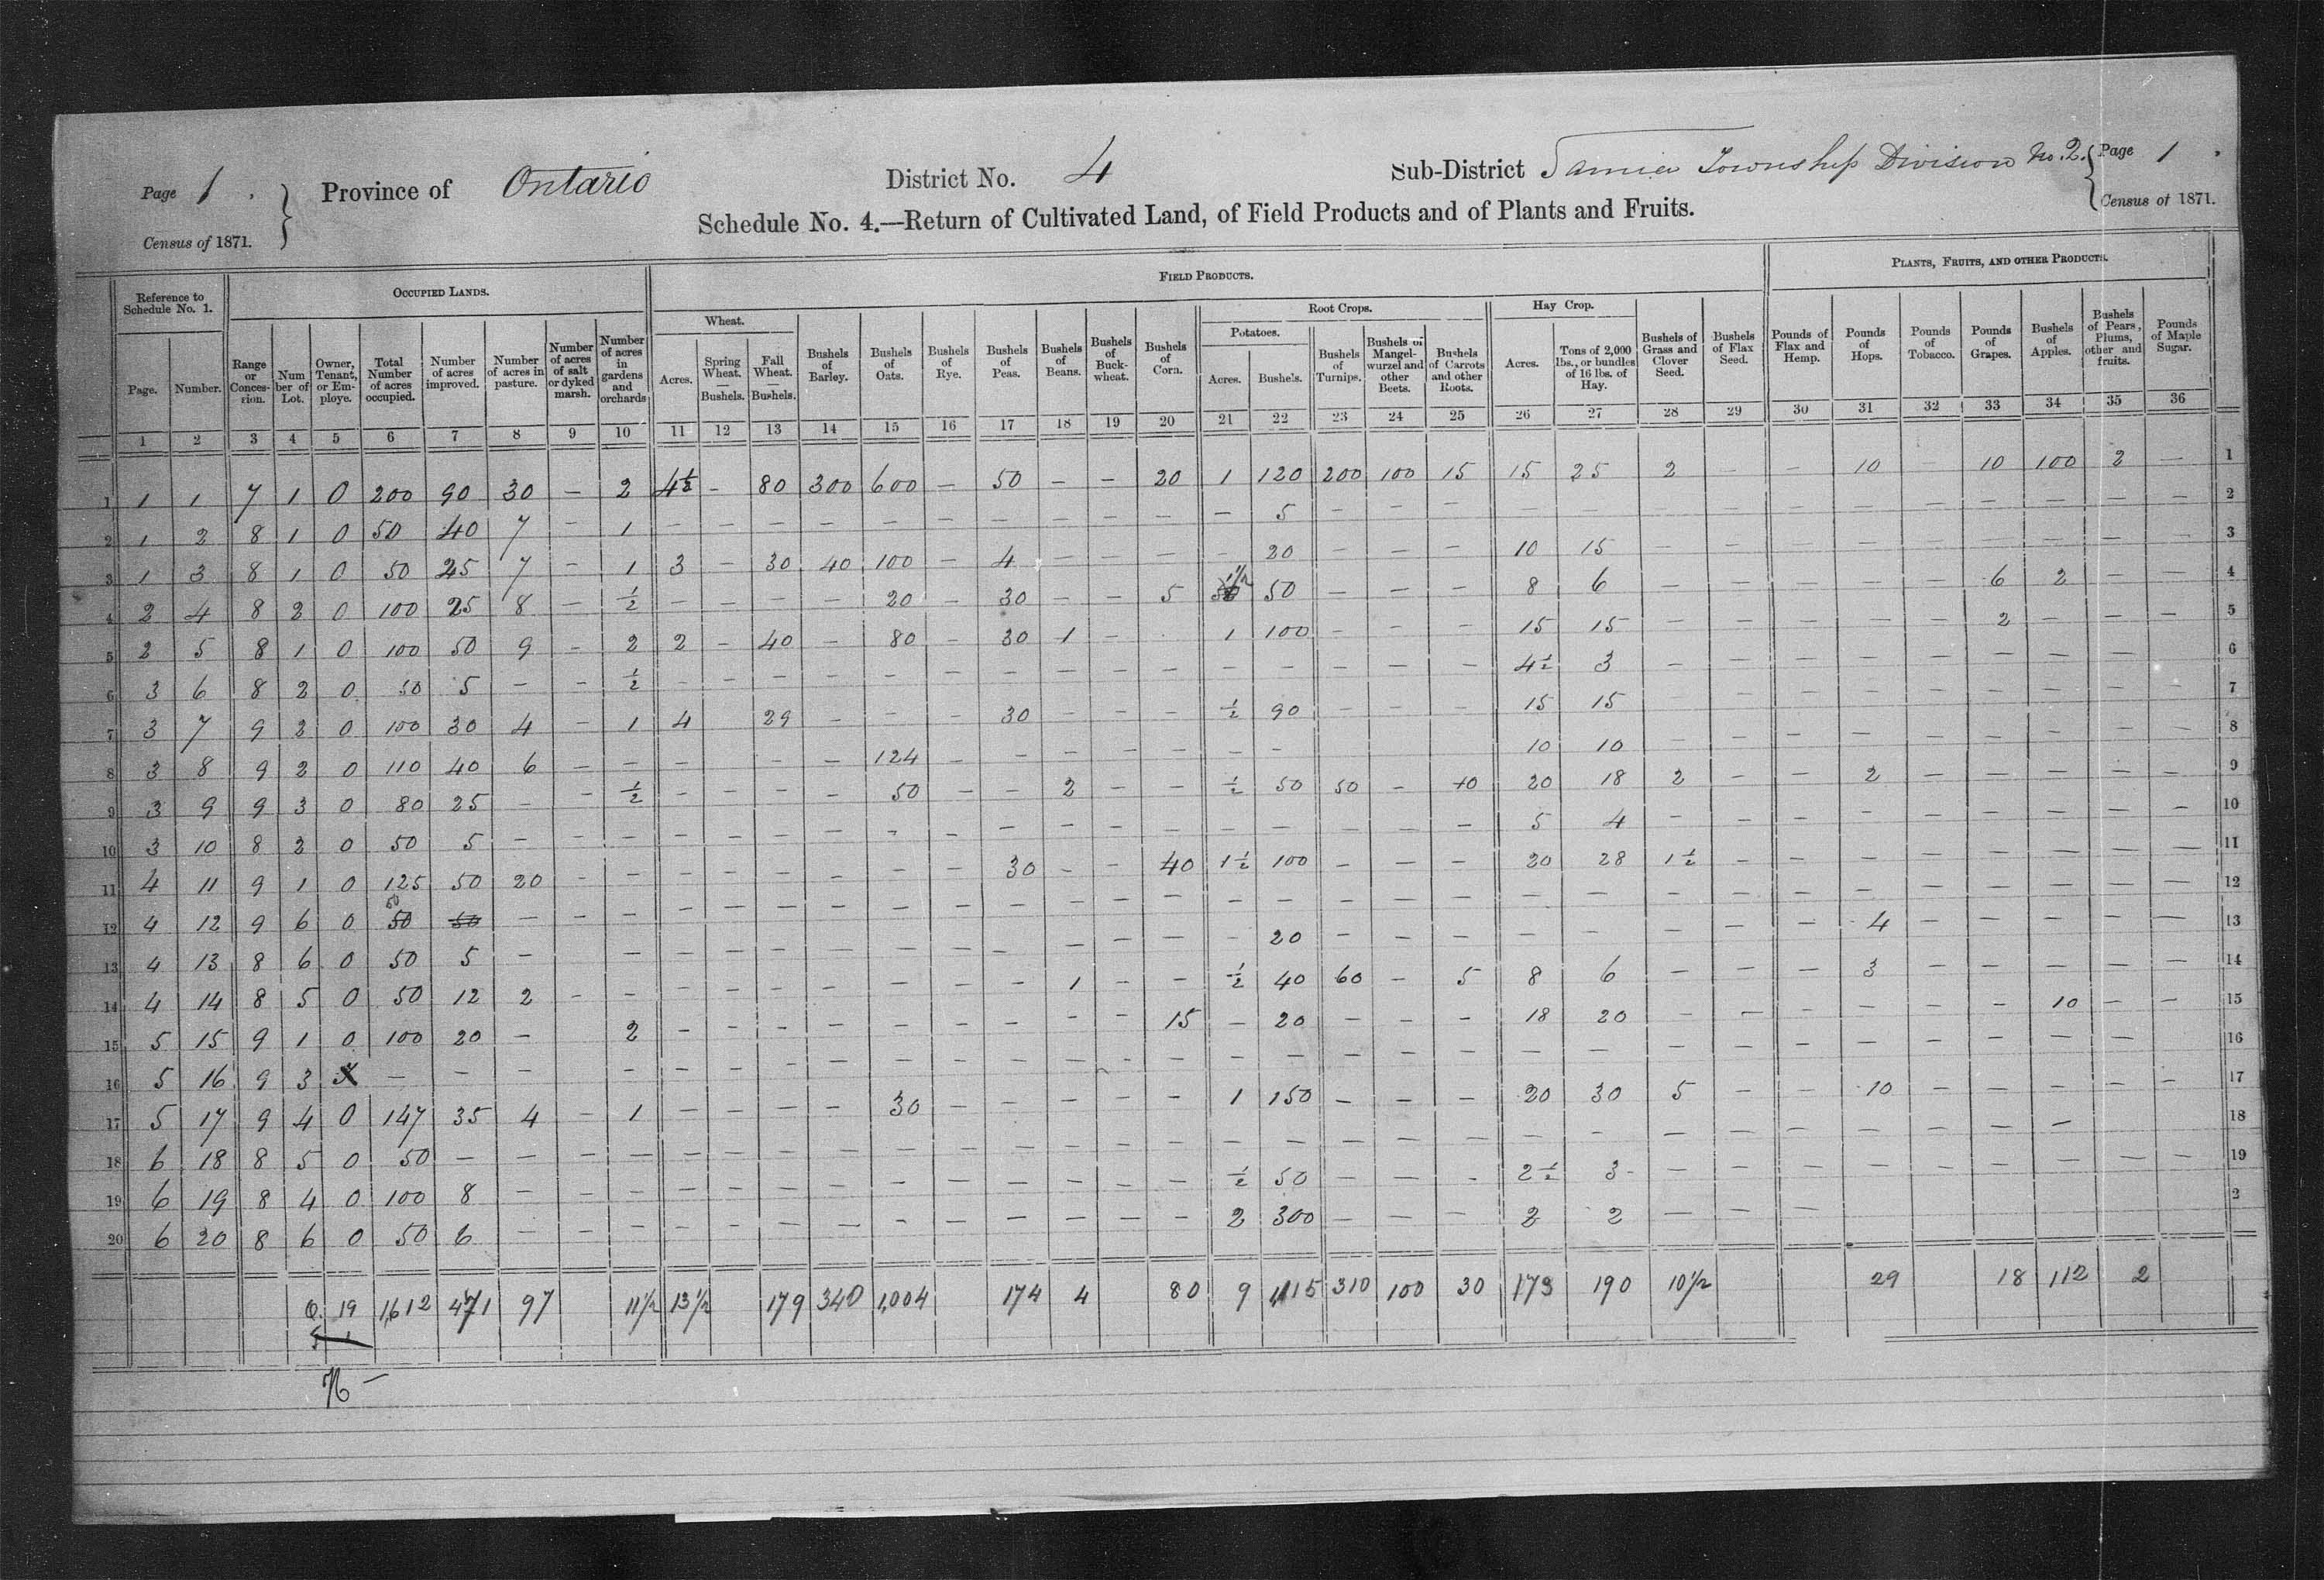 Page 1. Province of Ontario District No. 4 Sub-District Sarnia Township Division No. 2. Page 1.
Census of 1871. Census of 1871.
Schedule No. 4.—Return of Cultivated Land, of Field Products and of Plants and Fruits.
Reference to Schedule No. 1. OCCUPIED LANDS. FIELD PRODUCTS. PLANTS, FRUITS, AND OTHER PRODUCTS.
Wheat. Root Crops. Hay Crop.
Potatoes.
Page. Number. Range or Conces-sion. Num ber of Lot. Owner, Tenant, or Em-ploye. Total Number of acres occupied. Number of acres improved. Number of acres in pasture. Number of acres of salt or dyked marsh. Number of acres in gardens and orchards Acres. Spring Wheat.—Bushels. Fall Wheat.—Bushels. Bushels of Barley. Bushels of Oats. Bushels of Rye. Bushels of Peas. Bushels of Beans. Bushels of Buck-wheat. Bushels of Corn. Acres. Bushels. Bushels of Turnips. Bushels of Mangel-wurzel and other Beets. Bushels of Carrots and other Roots. Acres. Tons of 2,000 lbs., or bundles of 16 lbs. of Hay. Bushels of Grass and Clover Seed. Bushels of Flax Seed. Pounds of Flax and Hemp. Pounds of Hops. Pounds of Tobacco. Pounds of Grapes. Bushels of Apples. Bushels of Pears, Plums, other and fruits. Pounds of Maple Sugar.
1 2 3 4 5 6 7 8 9 10 11 12 13 14 15 16 17 18 19 20 21 22 23 24 25 26 27 28 29 30 31 32 33 34 35 36
1 1 1 7 1 0 200 90 30 — 2 4½ — 80 300 600 — 50 — — 20 1 120 200 100 15 15 25 2 — — 10 — 10 100 2 — 1
2 1 2 8 1 0 50 40 7 — 1 — — — — — — — — — — — 5 — — — — — — — — — — — — — — 2
3 1 3 8 1 0 50 25 7 — 1 3 — 30 40 100 — 4 — — — — 20 — — — 10 15 — — — — — — — — — 3
4 2 4 8 2 0 100 25 8 — ½ — — — — 20 — 30 — — 5 1/2 50 — — — 8 6 — — — — — 6 2 — — 4
5 2 5 8 1 0 100 50 9 — 2 2 — 40 — 80 — 30 1 — 1 100 — — — 15 15 — — — — — 2 — — — 5
6 3 6 8 2 0 50 5 — — ½ — — — — — — — — — — — — — — — 4½ 3 — — — — — — — — 6
7 3 7 9 2 0 100 30 4 — 1 4 29 — — — 30 — — — ½ 90 — — — 15 15 — — — — — — — — — 7
8 3 8 9 2 0 110 40 6 — — — — — 124 — — — — — — — 10 10 — — — — — — — — — 8
9 3 9 9 3 0 80 25 — — ½ — — — — 50 — — 2 — — ½ 50 50 — 10 20 18 2 — — 2 — — — — — 9
10 3 10 8 2 0 50 5 — — — — — — — — — — — — — — — — — — 5 4 — — — — — — — — — 10
11 4 11 9 1 0 125 50 20 — — — — — — — — 30 — — 40 1½ 100 — — — 20 28 1½ — — — — — — — — 11
12 4 12 9 6 0 50 50 50 — — — — — — — — — — — — — — — — — — — — — — — — — — — — — 12
13 4 13 8 6 0 50 5 — — — — — — — — — — — — — 20 — — — — — — — — 4 — — — — — 13
14 4 14 8 5 0 50 12 2 — — — — — — — — — 1 — — ½ 40 60 — 5 8 6 — — — 3 — — — — — 14
15 5 15 9 1 0 100 20 — 2 — — — — — — — — — 15 — 20 — — — 18 20 — — — — — — 10 — — 15
16 5 16 9 3 — — — — — — — — — — — — — — — — — — — — — — — — — — — — — — 16
17 5 17 9 4 0 147 35 4 — 1 — — — — 30 — — — — — 1 150 — — — 20 30 5 — — 10 — — — — — 17
18 6 18 8 5 0 50 — — — — — — — — — — — — — — — — — — — — — — — — — — — — 18
19 6 19 8 4 0 100 8 — — — — — — — — — — — — — ½ 50 — — — 2½ 3 — — — — — — — — — 19
20 6 20 8 6 0 50 6 — — — — — — — — — — — — — 2 300 — — — 2 2 — — — 2
O. 19 1,612 471 97 11½ 13½ 179 340 1,004 174 4 80 9 1,115 310 100 30 173 190 10½ 29 18 112 2